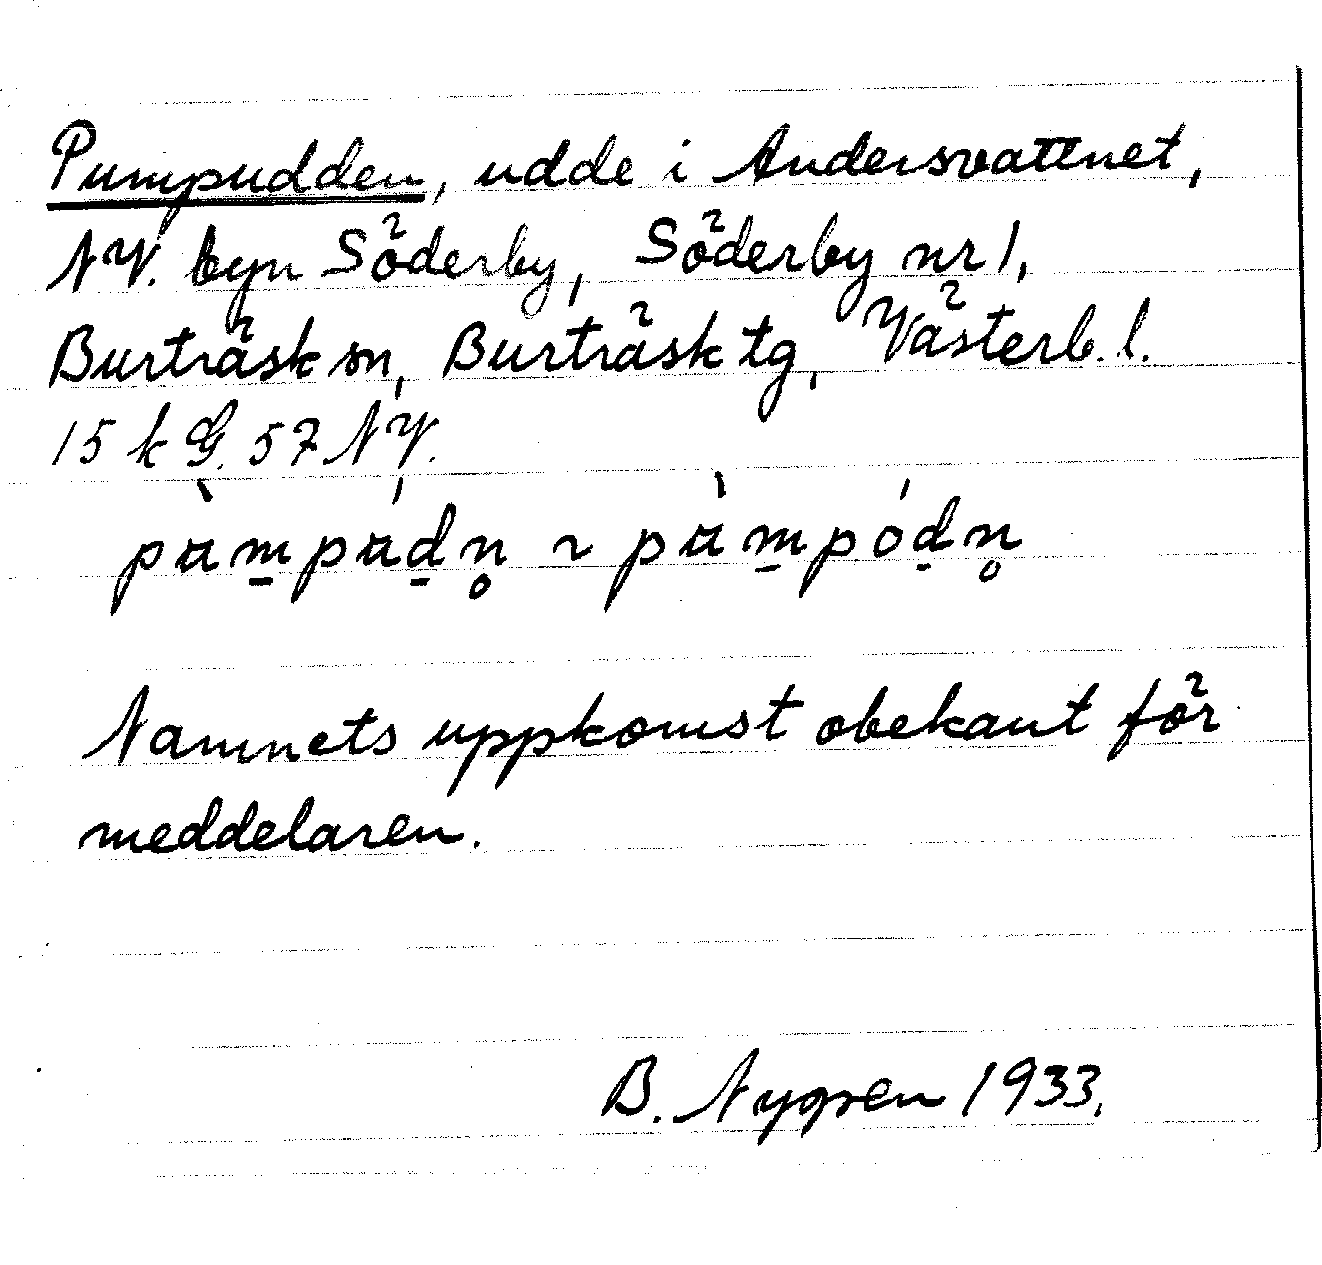 Pumpudden, udde i Andersvattnet,
NV. byn Söderby, Söderby nr 1,
Burträsk sn, Burträsk tg, Västerb. l.
15 k G. 57 NV.
pὰm̱pάḏn̥ ~ pὰm̱póḏn̥
Namnets uppkomst obekant för
meddelaren.
B. Nygren 1933.